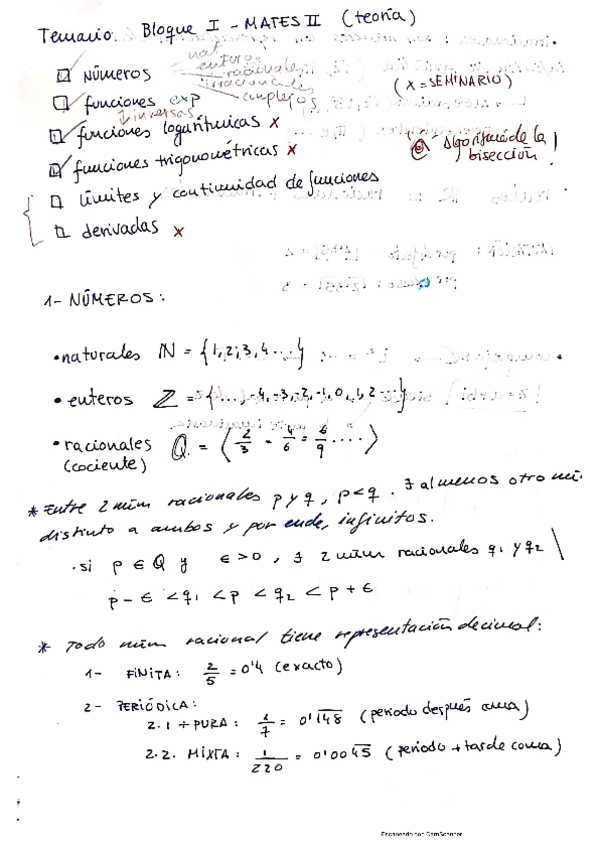 Temario: Bloque I - MATES II (teoría)
☐ números nat enteros racionales irracionales complejos
(x = SEMINARIO)
☐ funciones exp
↓ inversas
☐ funciones logarítmicas x
Algoritmo de la bisección!
☐ funciones trigonométricas x
☐ límites y continuidad de funciones
☐ derivadas x
1- NÚMEROS:
• naturales ℕ = {1, 2, 3, 4 ...}
• enteros ℤ = {..., -4, -3, -2, -1, 0, 1, 2 ...}
• racionales ℚ = ⟨ 2/3 = 4/6 = 6/9 .... ⟩
(cociente)
* Entre 2 núm racionales p y q, p < q. ∃ al menos otro nú
distinto a ambos y por ende, infinitos.
· si p ∈ Q y ε > 0, ∃ 2 núm racionales q1 y q2 \
p - ε < q1 < p < q2 < p + ε
* Todo núm racional tiene representación decimal:
1- FINITA: 2/5 = 0'4 (exacto)
2- PERIÓDICA:
2.1 PURA: 1/7 = 0'148 (periodo después coma)
2.2. MIXTA: 1/220 = 0'0045 (periodo + tarde coma)
Escaneado con CamScanner